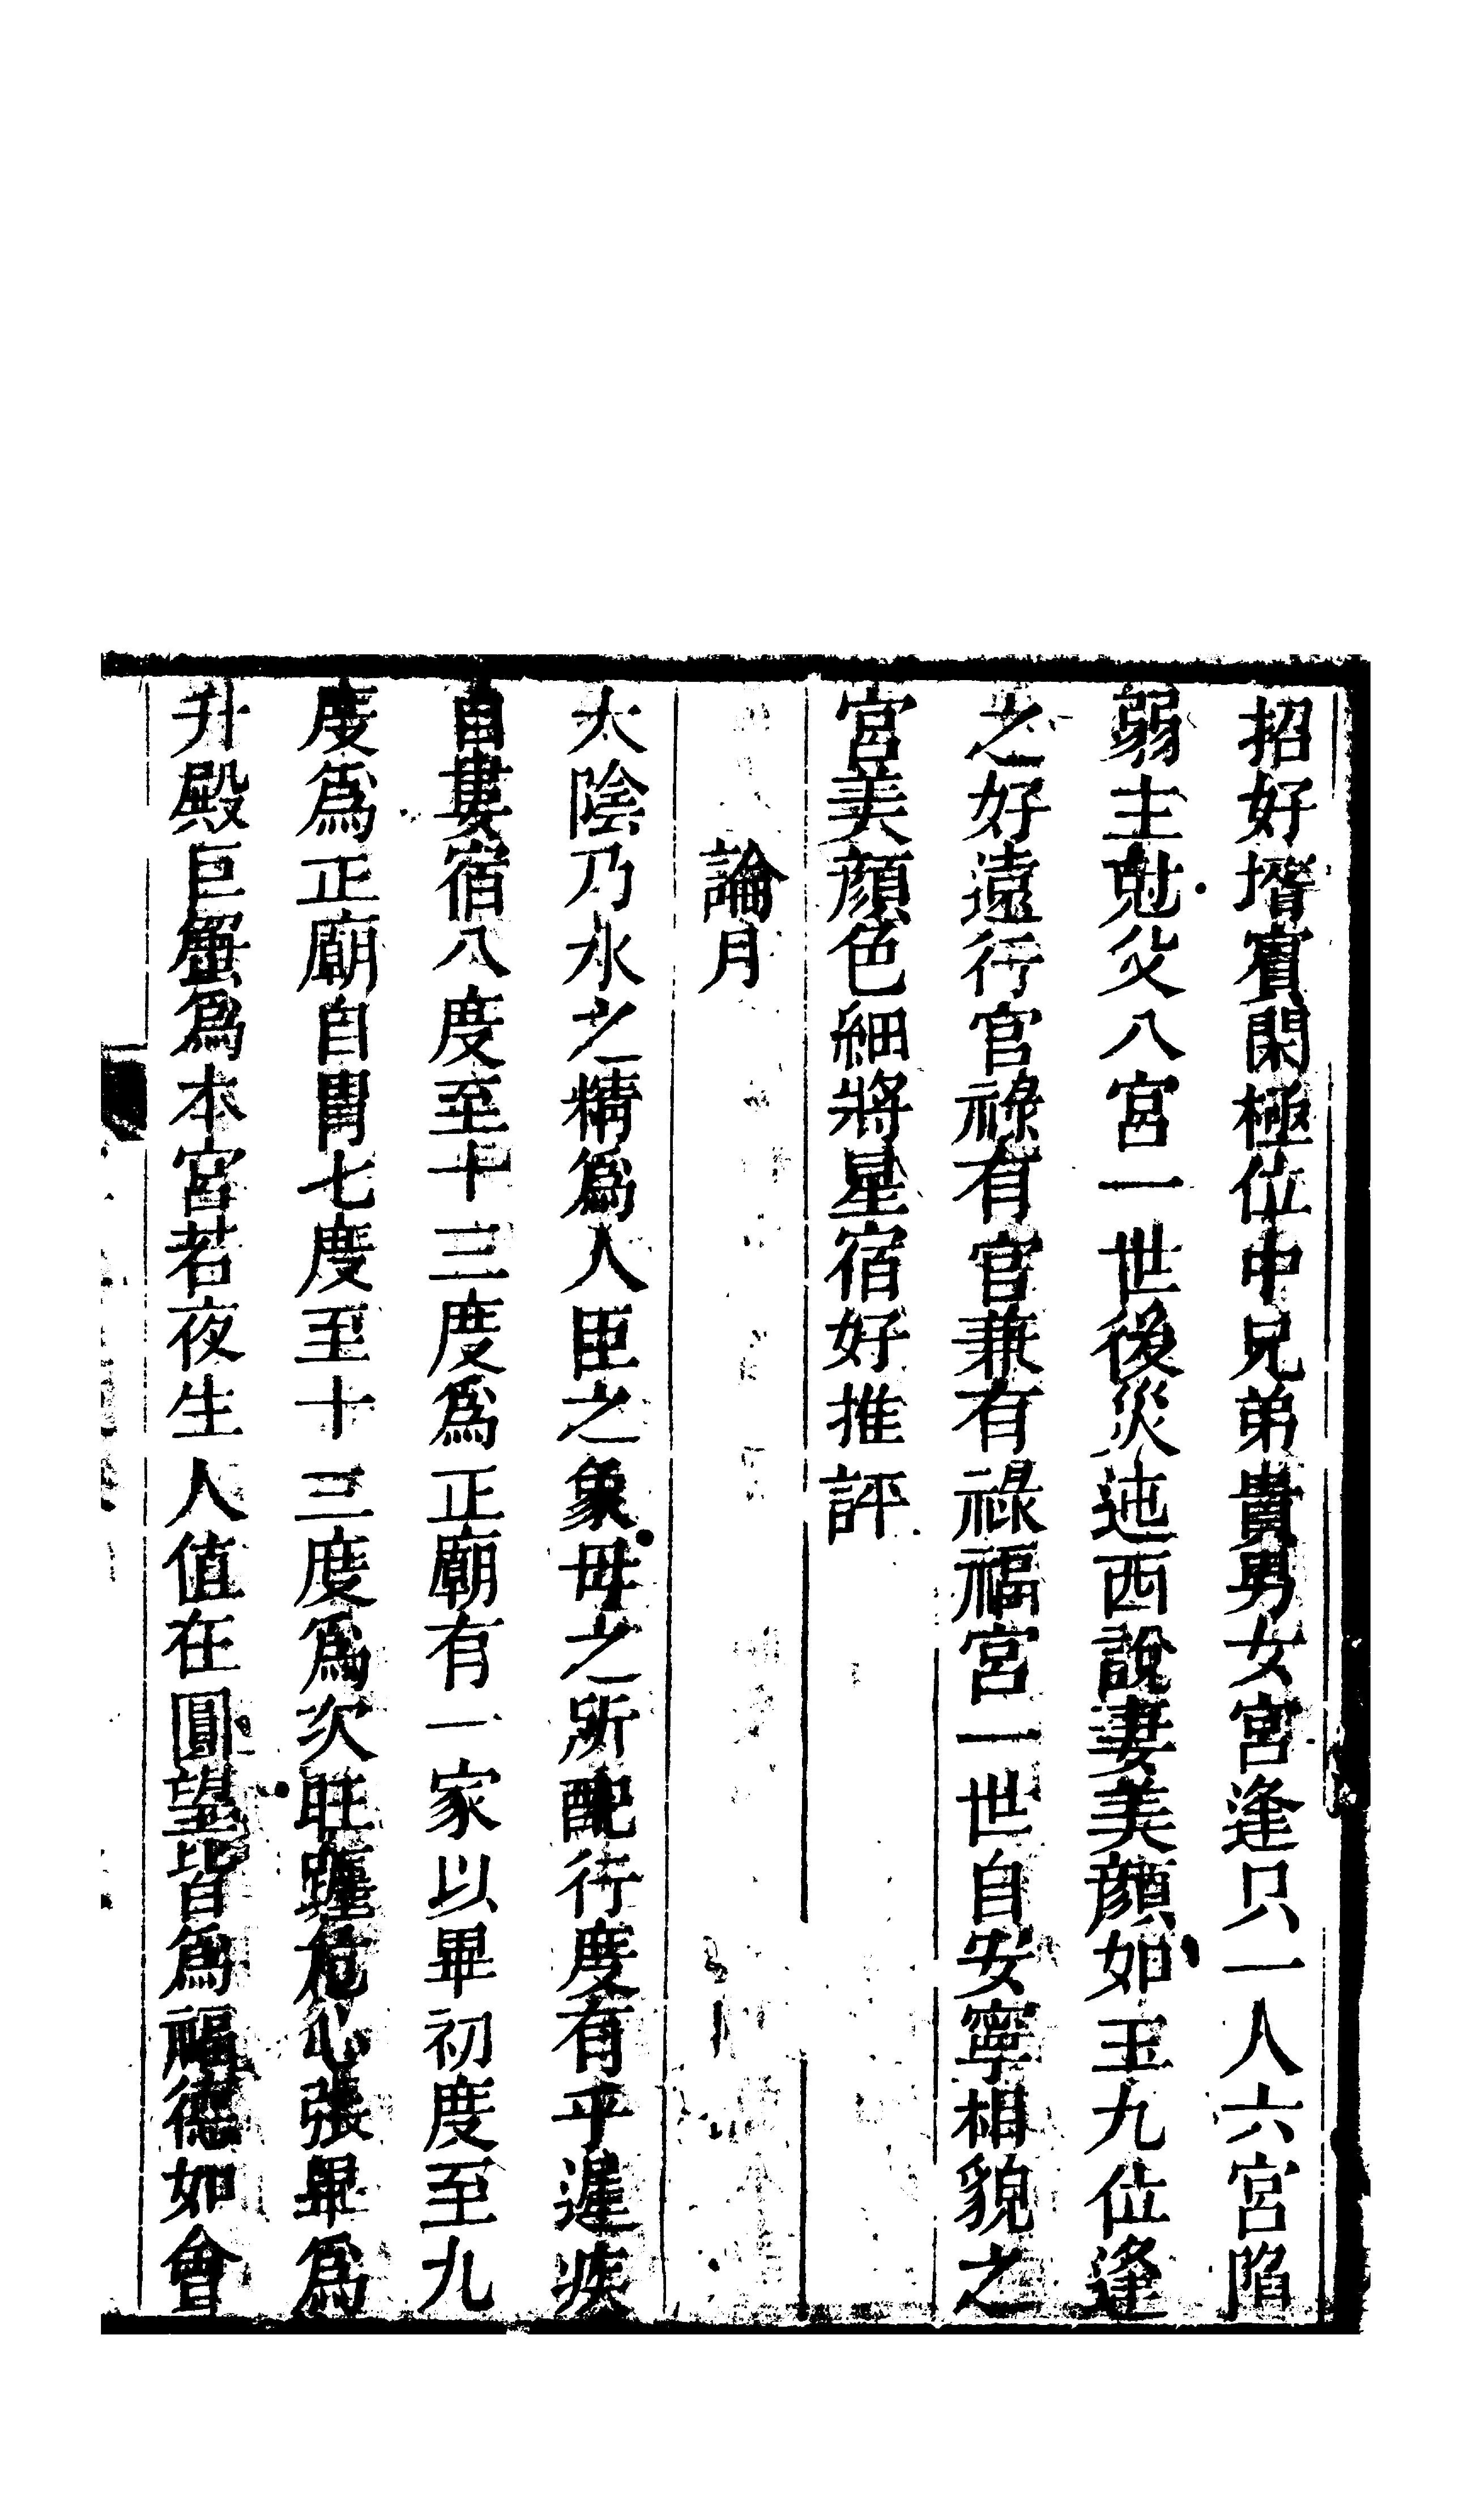 招好壻賓閑極位中兄弟貴男女宮逢只一人六宮陷
弱主尅父八宮一世後災迍西說妻美顔如玉九位逢
之好遠行官祿有官兼有祿福宮一世自安寧相貌之
宮美顔色細將星宿好推評
論月
太陰乃水之精爲人臣之象母之所配行度有乎遲疾
自婁宿八度至十三度爲正廟有一家以畢初度至九
度爲正廟自胃七度至十三度爲次旺躔危心張畢爲
升殿巨蟹爲本宮若夜生人值在圓望皆爲福德如會